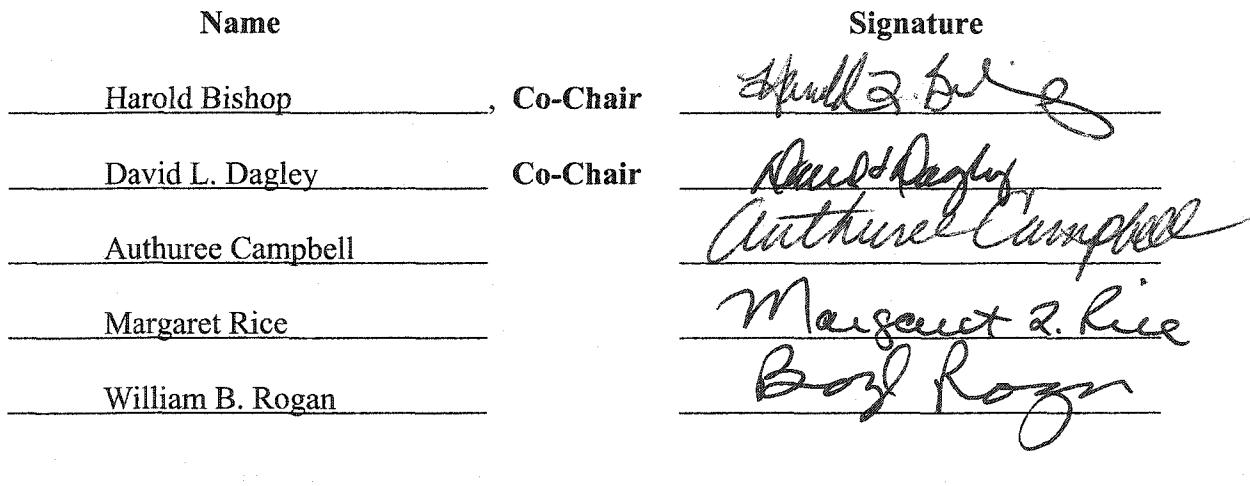 Name Signature
Harold Bishop , Co-Chair Harold L. Bishop
David L. Dagley Co-Chair David L Dagley
Authuree Campbell Authuree Campbell
Margaret Rice Margaret L. Rice
William B. Rogan Rogan